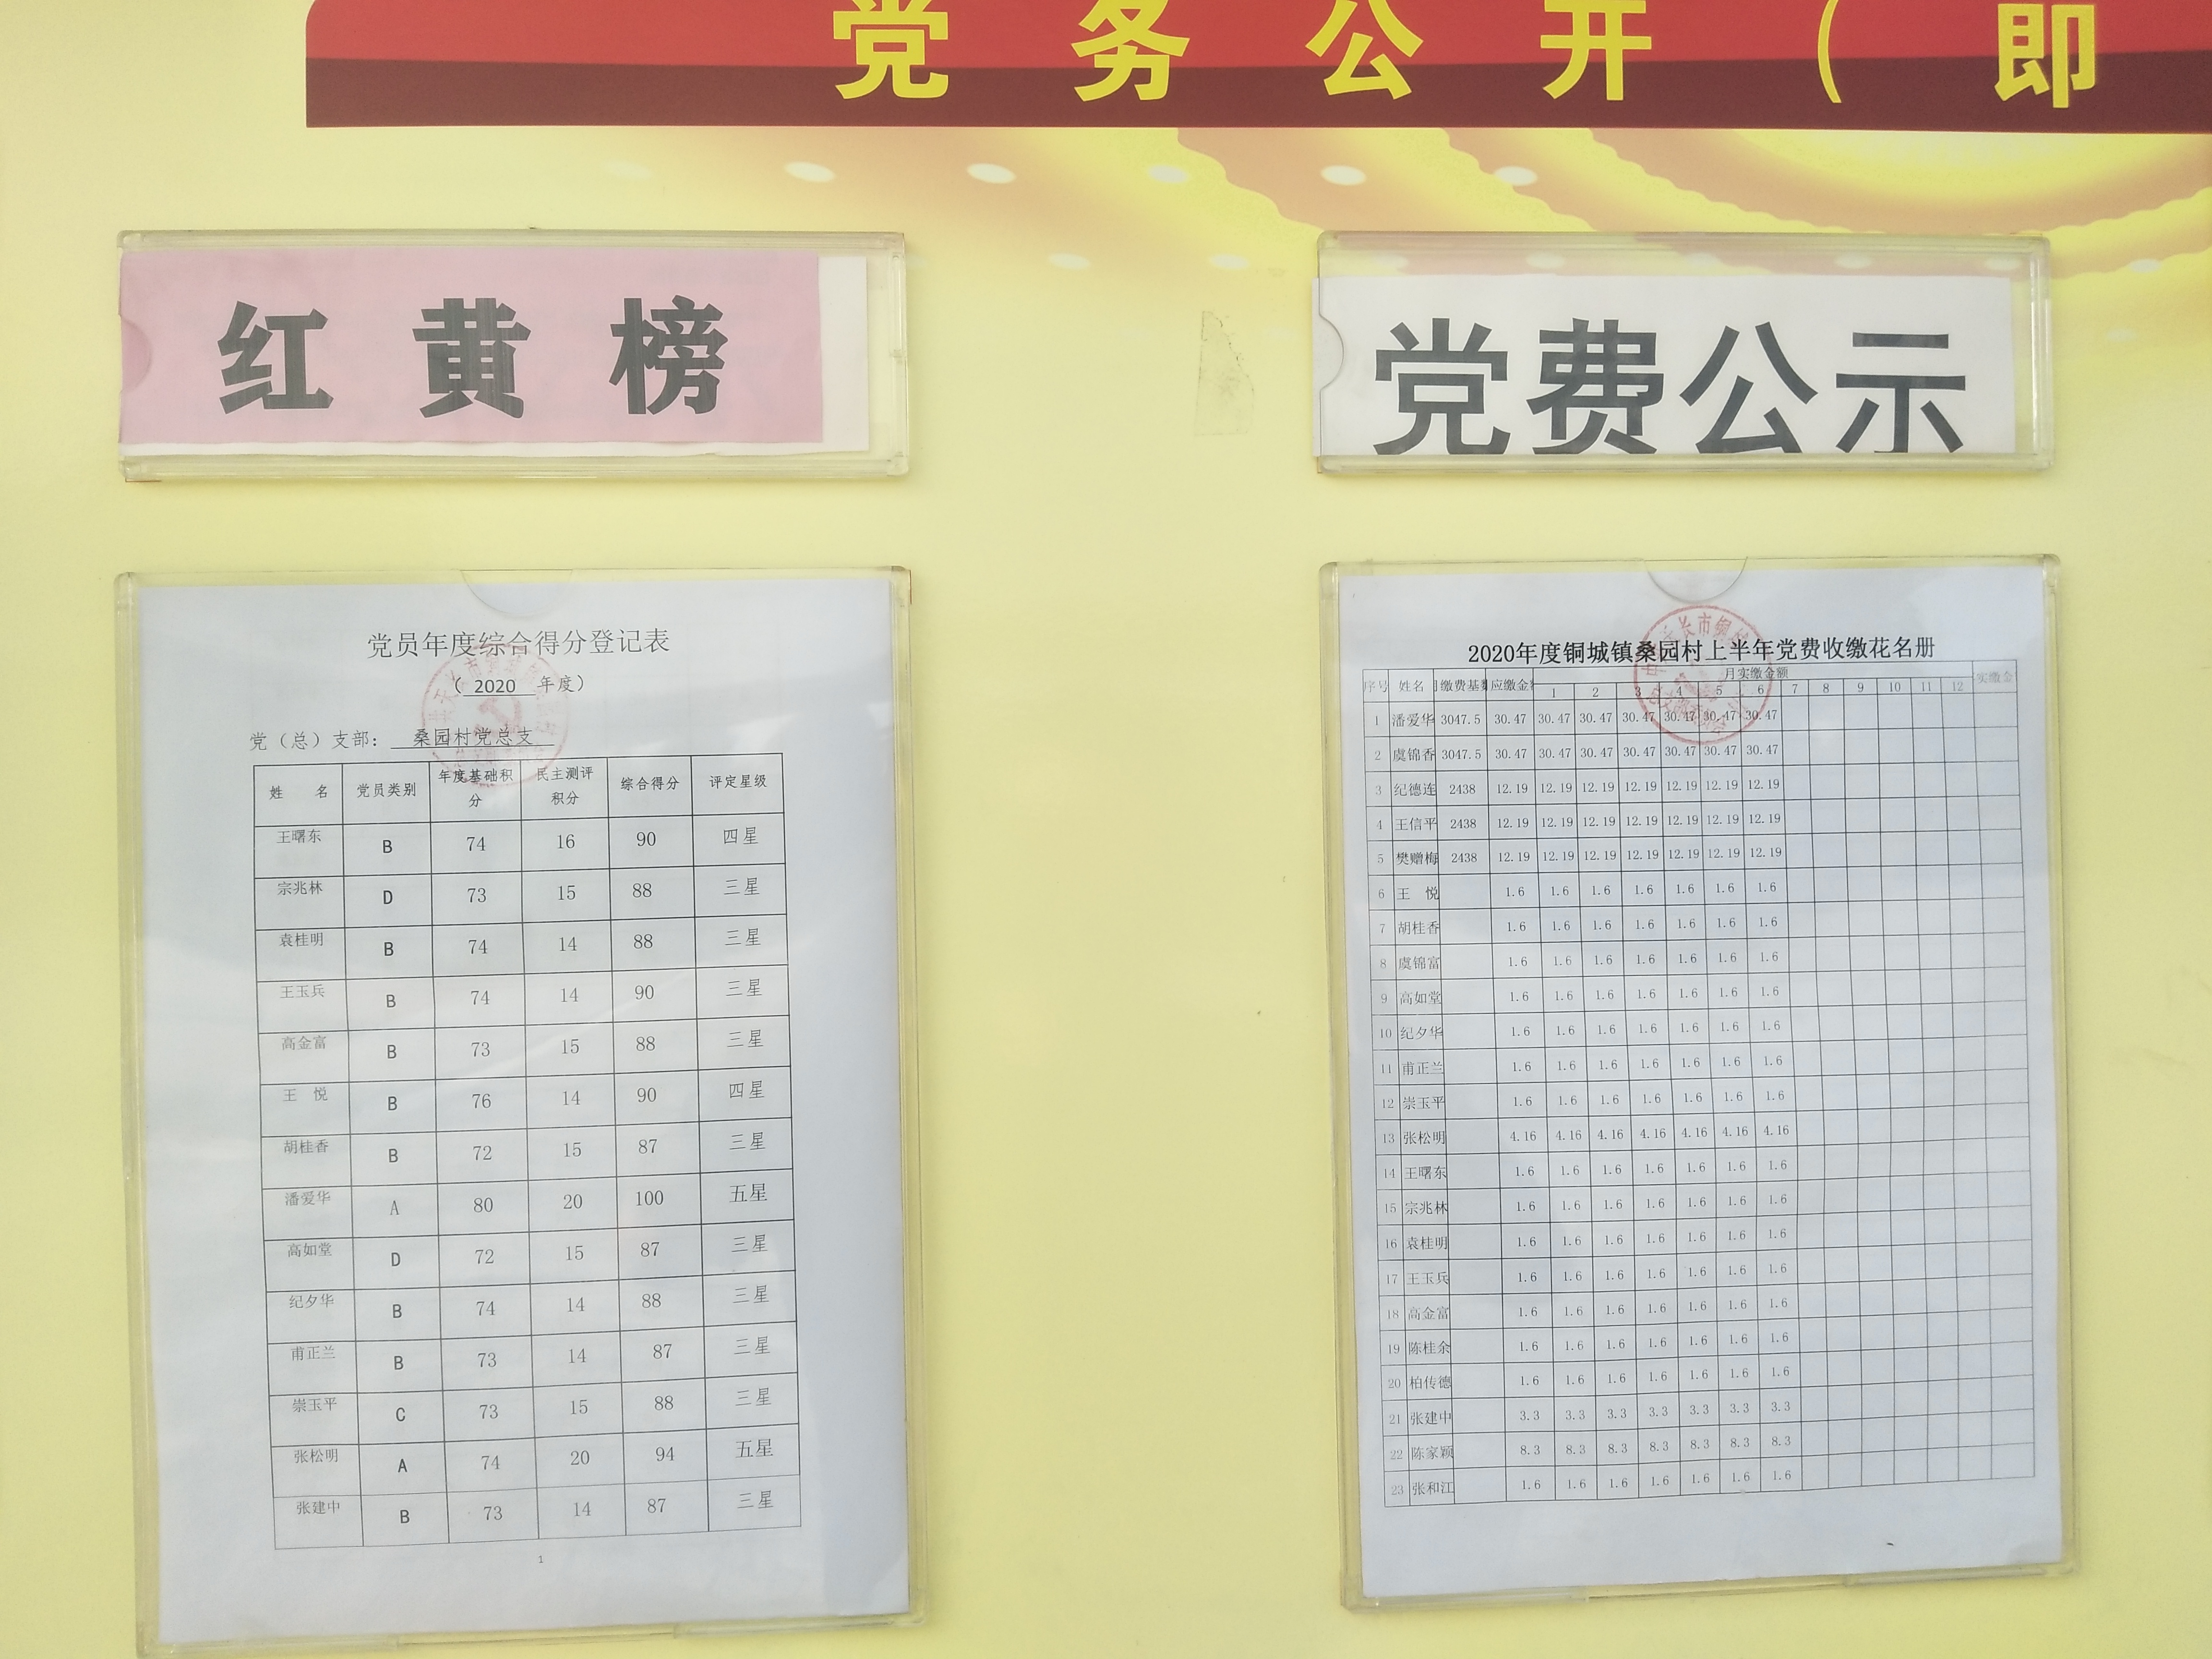 党务公开（即
红黄榜
党费公示
党员年度综合得分登记表
（ 2020 年度）
党（总）支部： 桑园村党总支
姓 名 党员类别 年度基础积分 民主测评积分 综合得分 评定星级
王曙东 B 74 16 90 四星
宗兆林 D 73 15 88 三星
袁桂明 B 74 14 88 三星
王玉兵 B 74 14 90 三星
高金富 B 73 15 88 三星
王 悦 B 76 14 90 四星
胡桂香 B 72 15 87 三星
潘爱华 A 80 20 100 五星
高如堂 D 72 15 87 三星
纪夕华 B 74 14 88 三星
甫正兰 B 73 14 87 三星
崇玉平 C 73 15 88 三星
张松明 A 74 20 94 五星
张建中 B 73 14 87 三星
1
2020年度铜城镇桑园村上半年党费收缴花名册
序号 姓名 缴费基 应缴金 月实缴金额 实缴金
1 2 3 4 5 6 7 8 9 10 11 12
1 潘爱华 3047.5 30.47 30.47 30.47 30.47 30.47 30.47 30.47
2 虞锦香 3047.5 30.47 30.47 30.47 30.47 30.47 30.47 30.47
3 纪德连 2438 12.19 12.19 12.19 12.19 12.19 12.19 12.19
4 王信平 2438 12.19 12.19 12.19 12.19 12.19 12.19 12.19
5 樊赠梅 2438 12.19 12.19 12.19 12.19 12.19 12.19 12.19
6 王 悦 1.6 1.6 1.6 1.6 1.6 1.6 1.6
7 胡桂香 1.6 1.6 1.6 1.6 1.6 1.6 1.6
8 虞锦富 1.6 1.6 1.6 1.6 1.6 1.6 1.6
9 高如堂 1.6 1.6 1.6 1.6 1.6 1.6 1.6
10 纪夕华 1.6 1.6 1.6 1.6 1.6 1.6 1.6
11 甫正兰 1.6 1.6 1.6 1.6 1.6 1.6 1.6
12 崇玉平 1.6 1.6 1.6 1.6 1.6 1.6 1.6
13 张松明 4.16 4.16 4.16 4.16 4.16 4.16 4.16
14 王曙东 1.6 1.6 1.6 1.6 1.6 1.6 1.6
15 宗兆林 1.6 1.6 1.6 1.6 1.6 1.6 1.6
16 袁桂明 1.6 1.6 1.6 1.6 1.6 1.6 1.6
17 王玉兵 1.6 1.6 1.6 1.6 1.6 1.6 1.6
18 高金富 1.6 1.6 1.6 1.6 1.6 1.6 1.6
19 陈桂余 1.6 1.6 1.6 1.6 1.6 1.6 1.6
20 柏传德 1.6 1.6 1.6 1.6 1.6 1.6 1.6
21 张建中 3.3 3.3 3.3 3.3 3.3 3.3 3.3
22 陈家颖 8.3 8.3 8.3 8.3 8.3 8.3 8.3
23 张和江 1.6 1.6 1.6 1.6 1.6 1.6 1.6